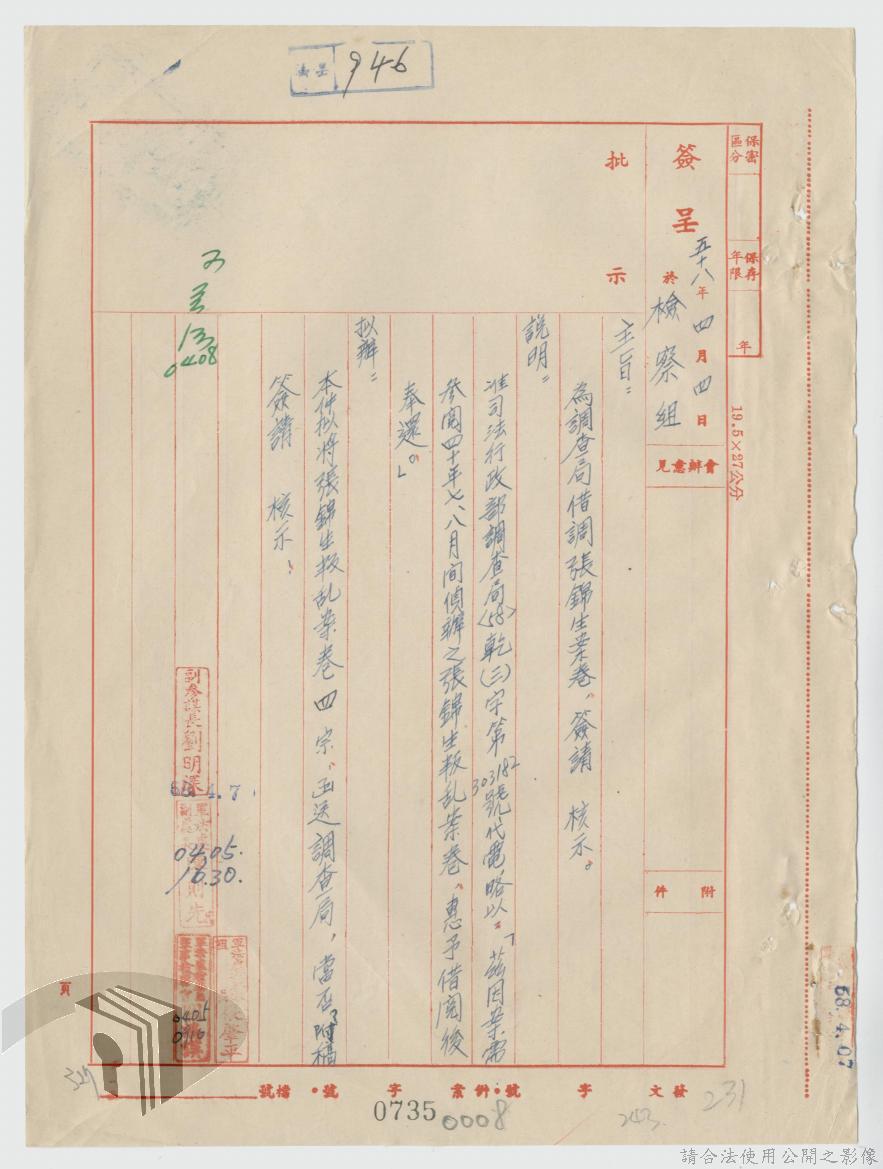 呈
946
保密
區分
保存
年限
年
19.5×27公分
簽呈
五十八年四月四日
於檢察組
會辦意見
附件
批示
主旨：
為調查局借調張錦生案卷，簽請 核示。
說明：
准司法行政部調查局(58)乾(三)字第303182號代電略以：「茲因案需
參閱四十年七、八月間偵辦之張錦生叛乱案卷，惠予借閱後
奉還。」
拟辦：
本件拟將張錦生叛乱案卷四宗，函送調查局，當否？附稿
簽請 核示！
0408
副參謀長劉明
4.7
04.05.
1630.
0405
0910
58.4.07
頁
發文 字 號‧附件 案 字 號‧檔號
0735
0008
327
243
231
請合法使用公開之影像